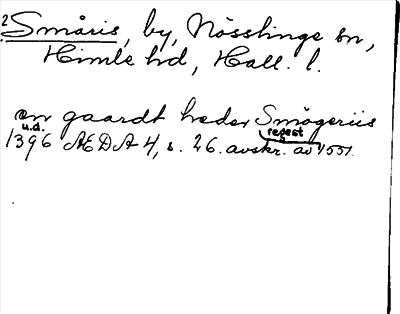 2 Småris, by, Nösslinge sn,
Himle hd, Hall. l.
en gaardt heder Smögeriis
u.d. regest
1396 ÆDA 4, s. 26. avskr. av 1551.